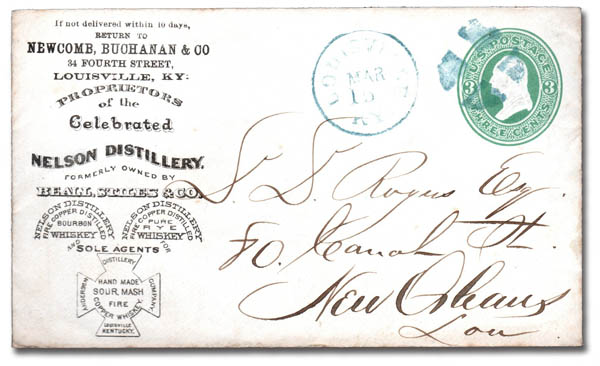 If not delivered within 10 days,
RETURN TO
NEWCOMB, BUCHANAN & CO
34 FOURTH STREET,
LOUISVILLE, KY:
PROPRIETORS
of the
Celebrated
NELSON DISTILLERY.
FORMERLY OWNED BY
BEALL, STILES & CO.
NELSON DISTILLERY
FIRE COPPER DISTILLED
BOURBON
WHISKEY
AND
NELSON DISTILLERY
FIRE COPPER DISTILLED
PURE
RYE
WHISKEY
FOR
SOLE AGENTS
DISTILLERY
ANDERSON
COMPANY
HAND MADE
SOUR, MASH
FIRE
COPPER WHISKEY
LOUISVILLE
KENTUCKY.
LOUISVILLE
MAR
KY
U.S. POSTAGE
3 3
THREE CENTS
S. D. Rogers Esq
80. Canal St.
New Orleans
Lou